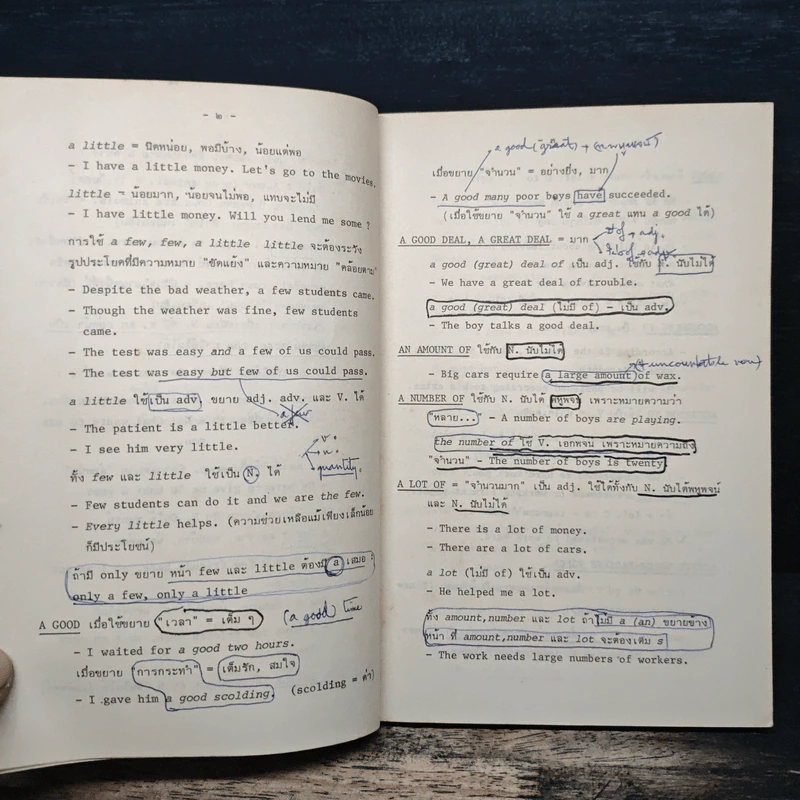 - ๒ -
a little = นิดหน่อย, พอมีบ้าง, น้อยแต่พอ
- I have a little money. Let's go to the movies.
little = น้อยมาก, น้อยจนไม่พอ, แทบจะไม่มี
- I have little money. Will you lend me some ?
การใช้ a few, few, a little little จะต้องระวัง
รูปประโยคที่มีความหมาย "ขัดแย้ง" และความหมาย "คล้อยตาม"
- Despite the bad weather, a few students came.
- Though the weather was fine, few students
came.
- The test was easy and a few of us could pass.
- The test was easy but few of us could pass.
a little ใช้เป็น adv. ขยาย adj. adv. และ V. ได้
- The patient is a little better.
- I see him very little.
v.
n.
quantity.
ทั้ง few และ little ใช้เป็น N. ได้
- Few students can do it and we are the few.
- Every little helps. (ความช่วยเหลือแม้เพียงเล็กน้อย
ก็มีประโยชน์)
ถ้ามี only ขยาย หน้า few และ little ต้องมี a เสมอ :
only a few, only a little
A GOOD เมื่อใช้ขยาย "เวลา" = เต็ม ๆ (a good) time
- I waited for a good two hours.
เมื่อขยาย "การกระทำ" = เต็มรัก, สมใจ
- I gave him a good scolding. (scolding = ด่า)
a good (great)
เมื่อขยาย "จำนวน" = อย่างยิ่ง, มาก
- A good many poor boys have succeeded.
(เมื่อใช้ขยาย "จำนวน" ใช้ a great แทน a good ได้)
A GOOD DEAL, A GREAT DEAL = มาก
a good (great) deal of เป็น adj. ใช้กับ N. นับไม่ได้
- We have a great deal of trouble.
a good (great) deal (ไม่มี of) - เป็น adv.
- The boy talks a good deal.
AN AMOUNT OF ใช้กับ N. นับไม่ได้
- Big cars require a large amount of wax.
A NUMBER OF ใช้กับ N. นับได้ พหูพจน์ เพราะหมายความว่า
"หลาย..." - A number of boys are playing.
the number of ใช้ V. เอกพจน์ เพราะหมายความถึง
"จำนวน" - The number of boys is twenty.
A LOT OF = "จำนวนมาก" เป็น adj. ใช้ได้ทั้งกับ N. นับได้พหูพจน์
และ N. นับไม่ได้
- There is a lot of money.
- There are a lot of cars.
a lot (ไม่มี of) ใช้เป็น adv.
- He helped me a lot.
ทั้ง amount,number และ lot ถ้าไม่มี a (an) ขยายข้าง
หน้า ที่ amount,number และ lot จะต้องเติม s
- The work needs large numbers of workers.